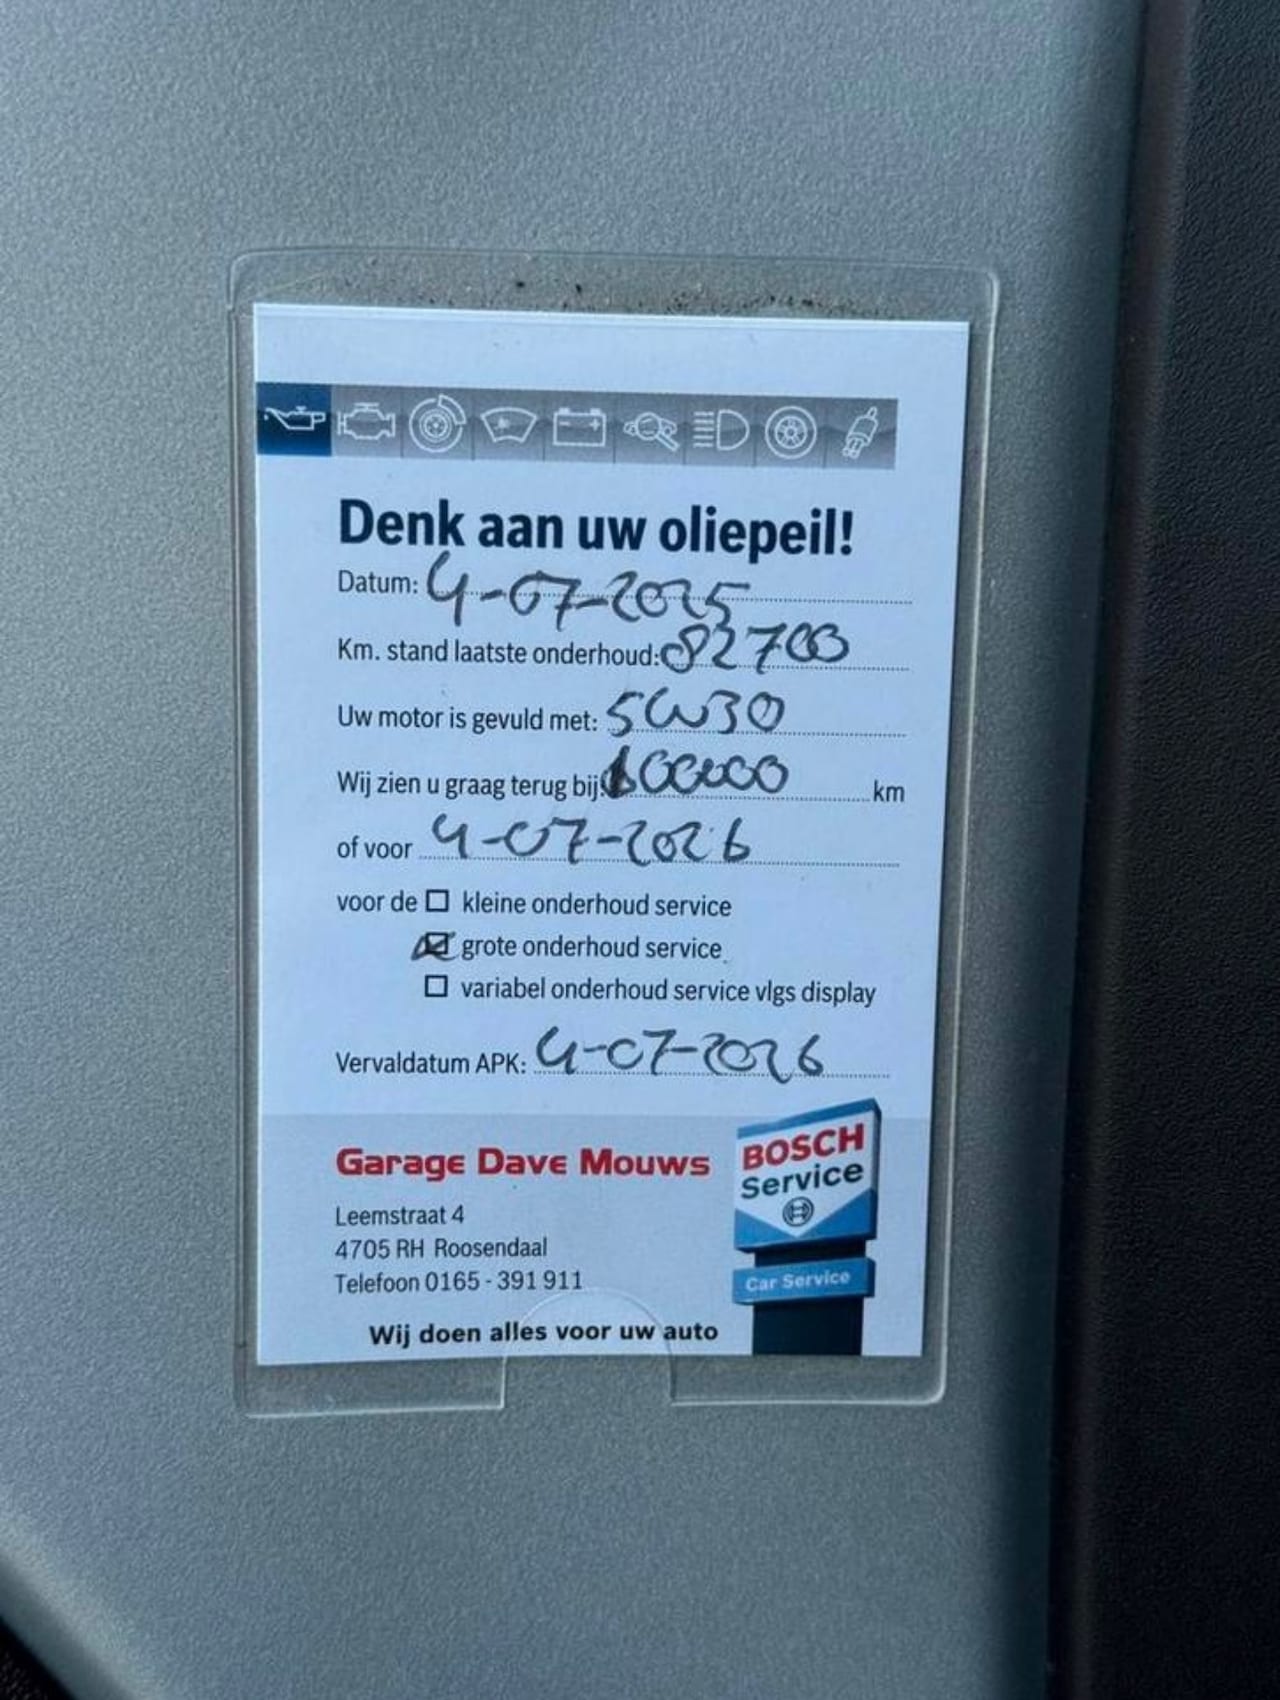 Denk aan uw oliepeil!
Datum: 4-07-2025
Km. stand laatste onderhoud: 82700
Uw motor is gevuld met: 5W30
Wij zien u graag terug bij: 100000 km
of voor 4-07-2026
voor de ☐ kleine onderhoud service
☒ grote onderhoud service
☐ variabel onderhoud service vlgs display
Vervaldatum APK: 4-07-2026
Garage Dave Mouws
Leemstraat 4
4705 RH Roosendaal
Telefoon 0165 - 391 911
Wij doen alles voor uw auto
BOSCH
Service
Car Service